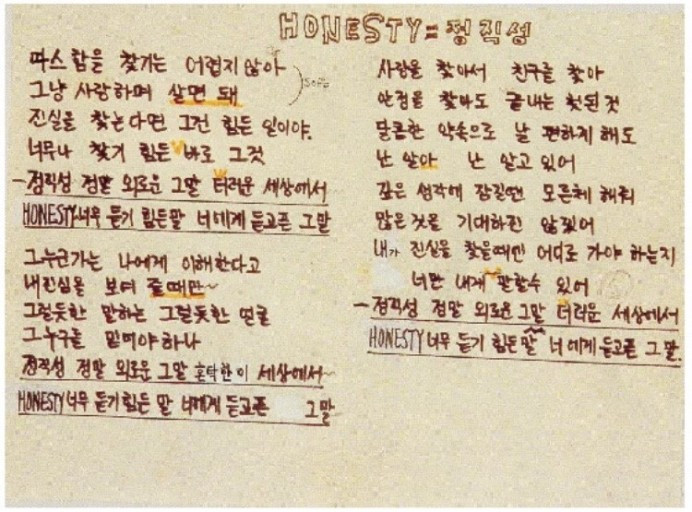 HONESTY = 정직성
따스함을 찾기는 어렵지않아
그냥 사랑하며 살면 돼
soft
진실을 찾는다면 그건 힘든 일이야.
너무나 찾기 힘든 바로 그것
-정직성 정말 외로운 그말 더러운 세상에서
HONESTY 너무 듣기 힘든말 너에게 듣고픈 그말
그누군가는 나에게 이해한다고
내진심을 보여 줄때만~
그럴듯한 말하는 그럴듯한 얼굴
그누구를 믿어야하나
정직성 정말 외로운 그말 혼탁한이 세상에서
HONESTY 너무 듣기 힘든 말 너에게 듣고픈 그말
사랑을 찾아서 친구를 찾아
안정을 찾아도 끝내는 헛된것
달콤한 약속으로 날 편하지 해도
난 알아 난 알고 있어
깊은 생각에 잠길땐 모른체 해줘
많은것을 기대하진 않겠어
내가 진실을 찾을때면 어디로 가야 하는지
너만 내게 말할수 있어
-정직성 정말 외로운 그말 더러운 세상에서
HONESTY 너무 듣기 힘든말 너에게 듣고픈 그말.